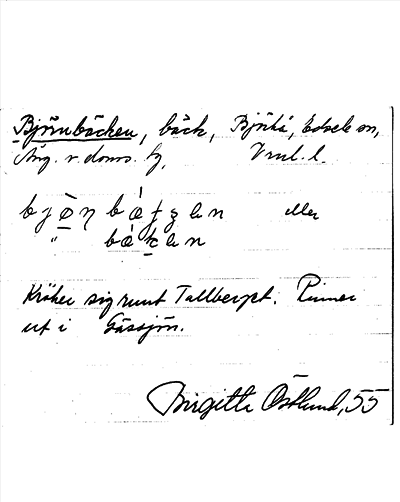 Björnbäcken, bäck, Björkå, Edsele sn,
Ång. v. doms. tg, Vnl. l.
eller
"
Kröker sig runt Tallberget. Rinner
ut i Gåssjön.
Birgitta Östlund, 55